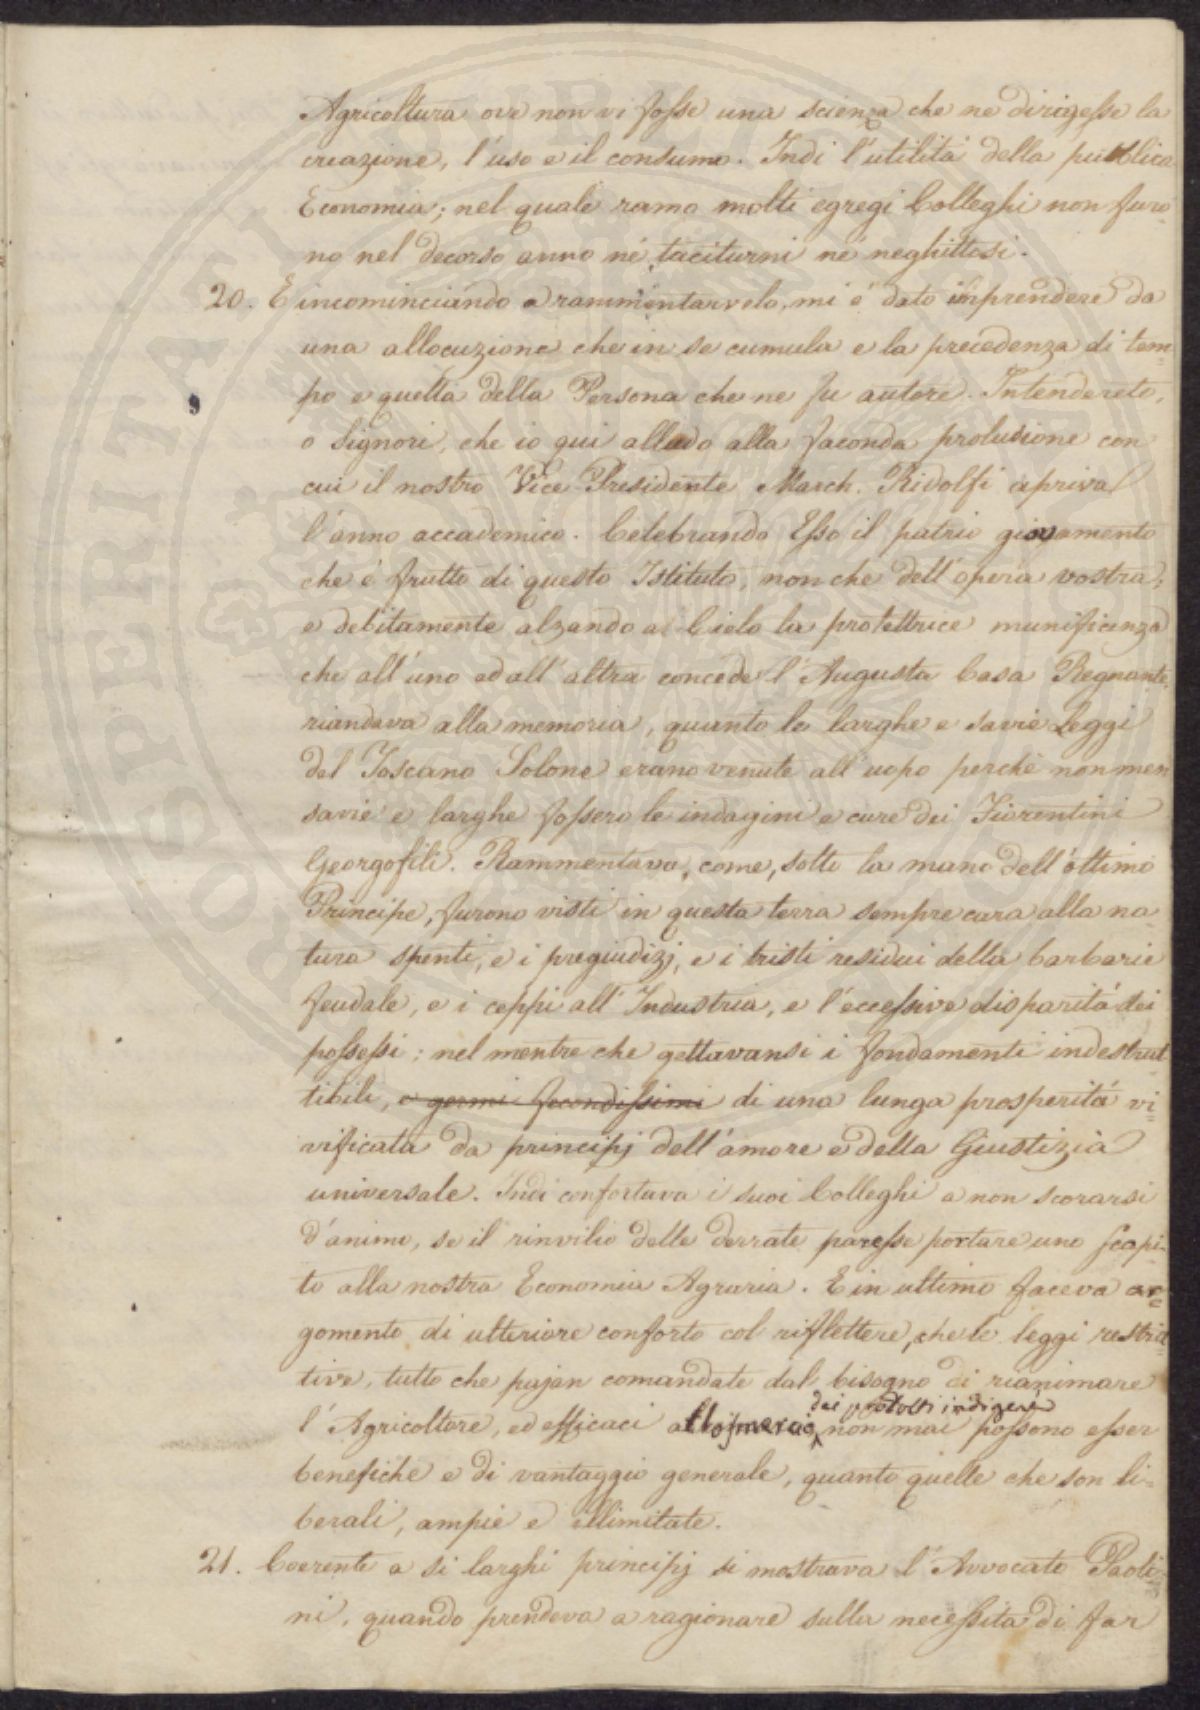 Agricoltura ove non vi fosse una scienza che ne dirigesse la
creazione, l'uso e il consumo. Indi l'utilità della pubblica
Economia; nel quale ramo molti egregi Colleghi non furo=
no nel decorso anno nè taciturni nè neghittosi.
20. E incominciando a rammentarvelo, mi è dato imprendere da
una allocuzione che in se cumula e la precedenza di tem=
po e quella della Persona che ne fu autore. Intenderete,
o Signori, che io qui alludo alla faconda prolusione con
cui il nostro Vice Presidente March. Ridolfi apriva
l'anno accademico. Celebrando Esso il patrio giovamento
che è frutto di questo Istituto, non che dell'opera vostra,
e debitamente alzando al Cielo la protettrice munificenza
che all'uno ed all'altra concede l'Augusta Casa Regnante,
riandava alla memoria, quanto le larghe e savie Leggi
del Toscano Solone erano venute all'uopo perchè non men
savie e larghe fossero le indagini e cure dei Fiorentini
Georgofili. Rammentava, come, sotto la mano dell'ottimo
Principe, furono visti in questa terra sempre cara alla na
tura spenti, e i pregiudizj, e i tristi residui della barbarie
feudale, e i ceppi all'Industria, e l'eccessive disparità dei
possessi: nel mentre che gettavansi i fondamenti indestrut
tibili, e germi fecondissimi di una lunga prosperità vi=
vificata da principj dell'amore e della Giustizia
universale. Indi confortava i suoi Colleghi a non scorarsi
d'animo, se il rinvilio delle derrate paresse portare uno scapi=
to alla nostra Economia Agraria. E in ultimo faceva ar=
gomento di ulteriore conforto col riflettere, che le leggi restrit=
tive, tutto che pajan comandate dal bisogno di rianimare
dei prodotti indigeni
l'Agricoltore, ed efficaci allo smercio non mai possono esser
benefiche e di vantaggio generale, quanto quelle che son li=
berali, ampie e illimitate.
21. Coerente a si larghi principj si mostrava l'Avvocato Paoli=
ni, quando prendeva a ragionare sulla necessità di far